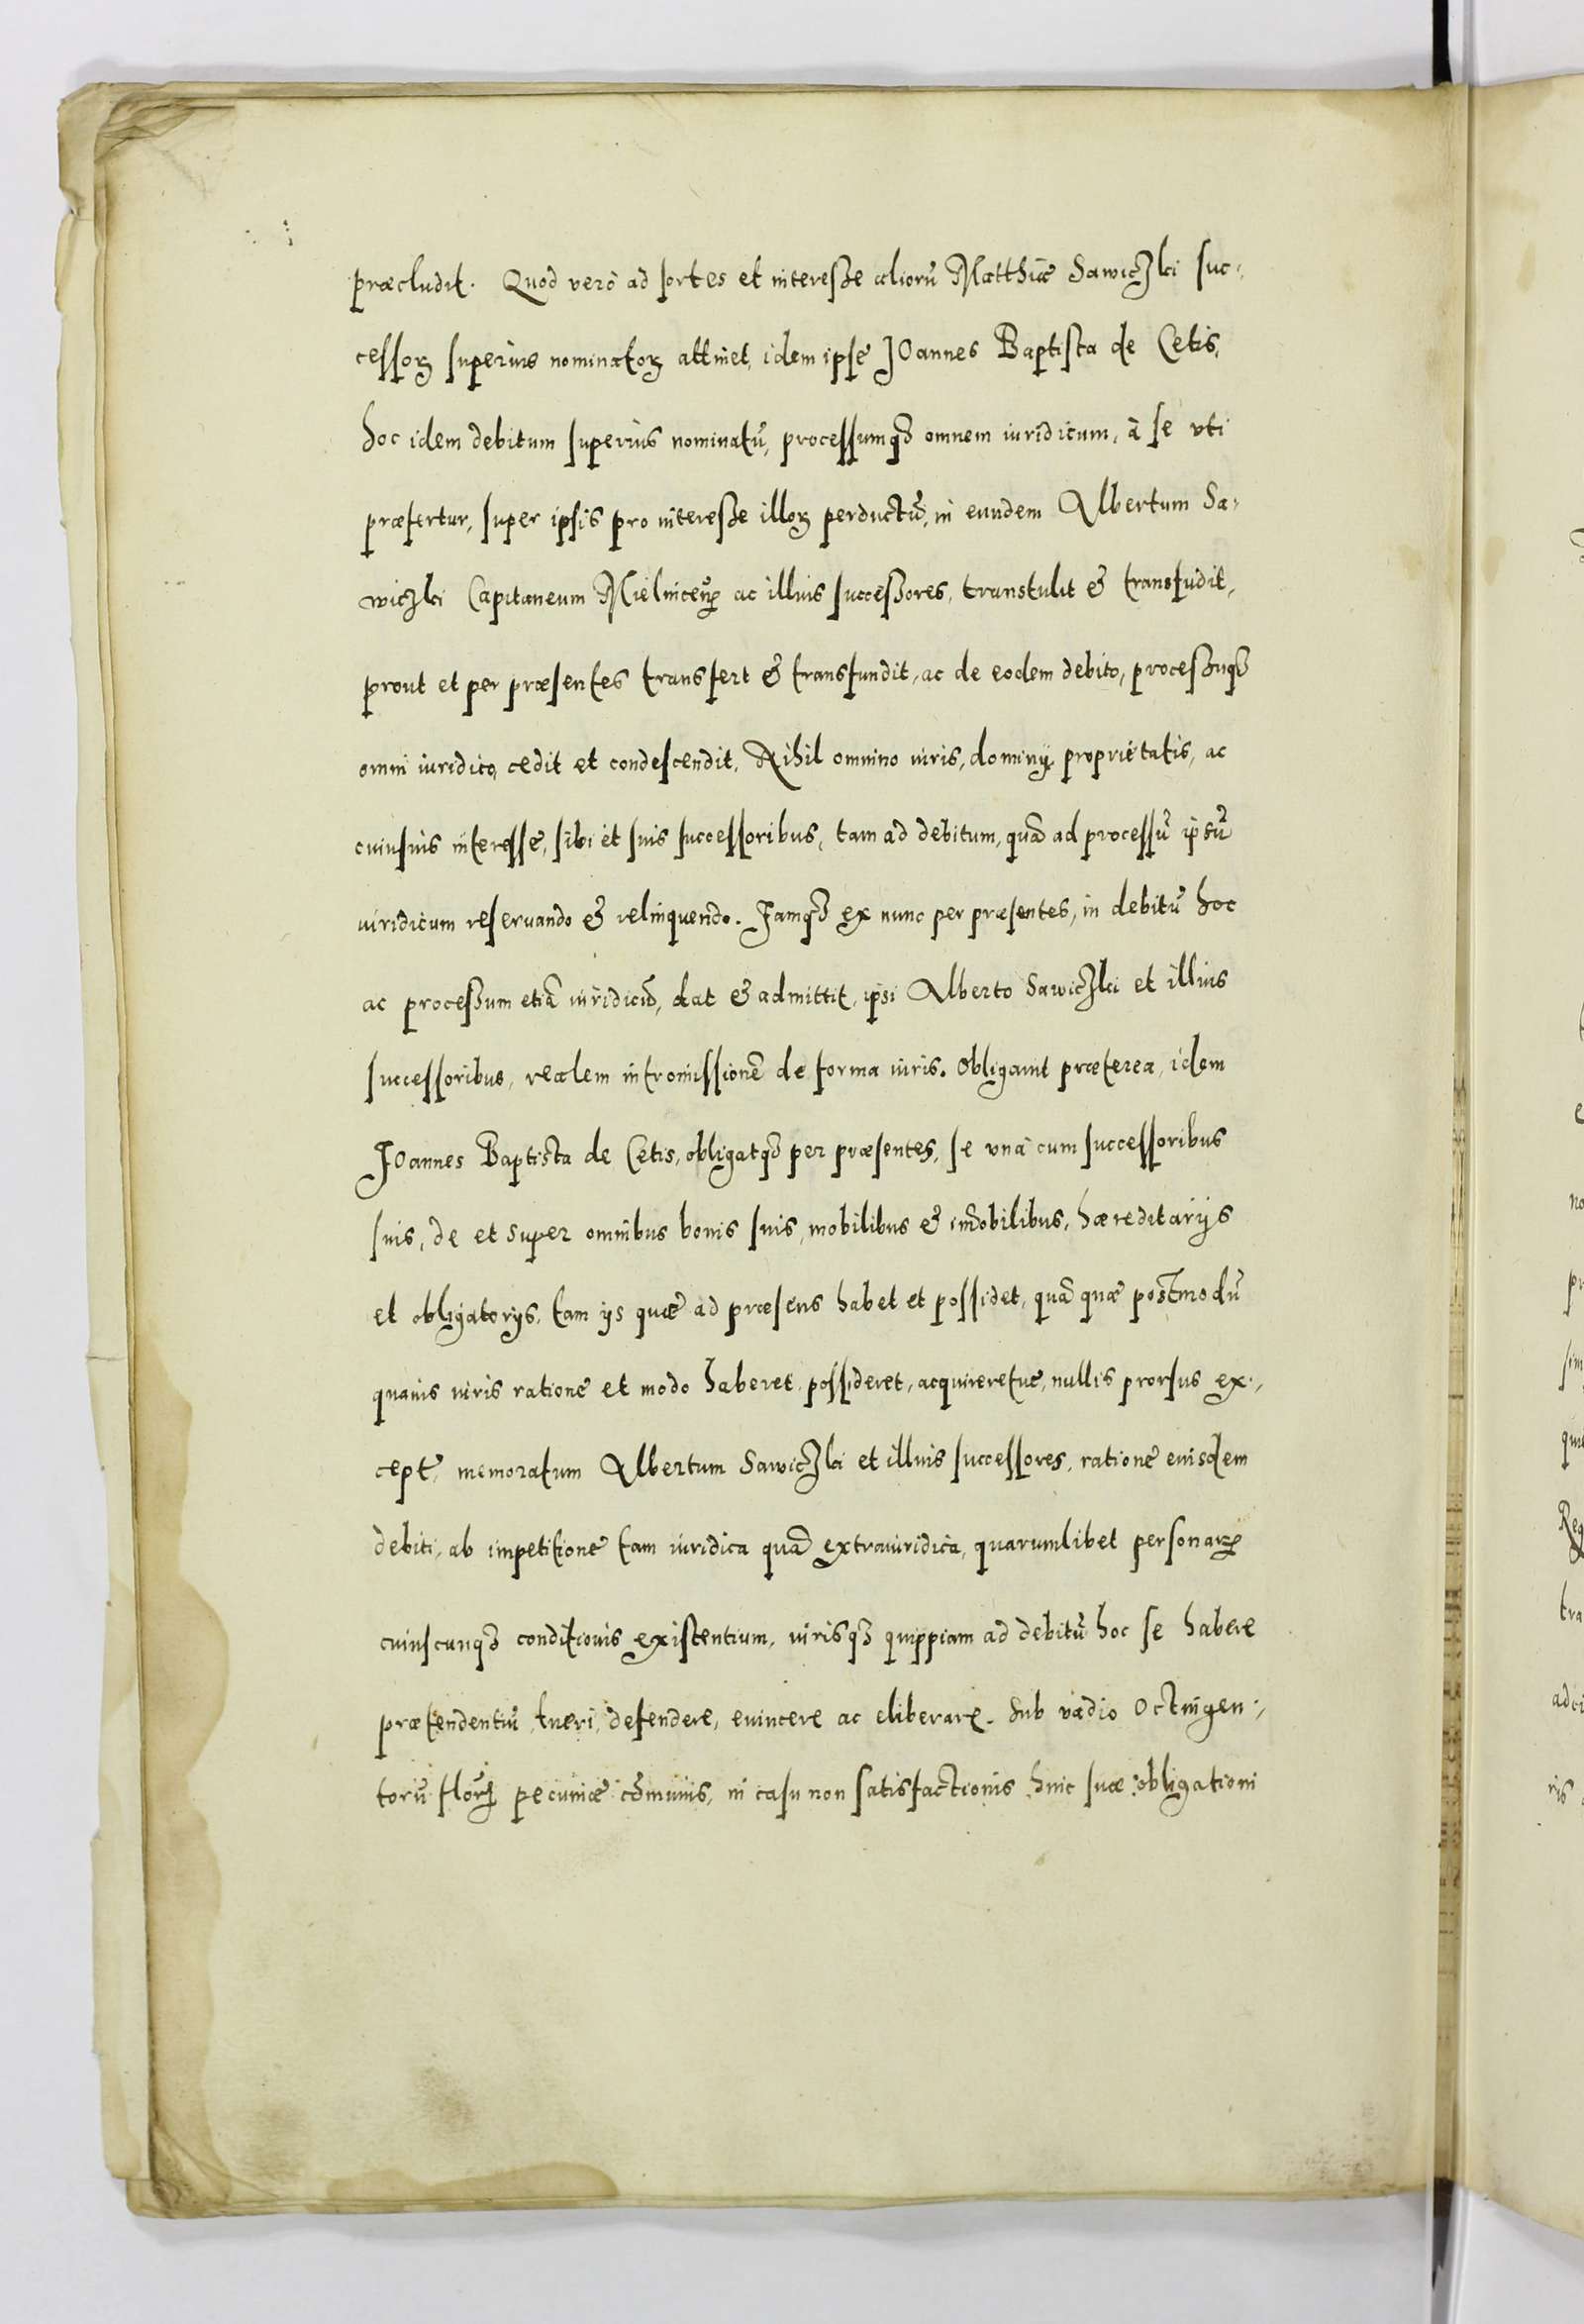 præcludit. Quod verò ad sortes et interesse aliorũ Matthiæ Sawiczki suc-
cessoꝝ superius nominatoꝝ attinet, idem ipse Joannes Baptista de Cetis,
hoc idem debitum superius nominatũ, processumqꝫ omnem iuridicum, à se vti
præfertur, super ipsis pro interesse illoꝝ perductũ, in eundem Albertum Sa-
wiczki Capitaneum Mielniceñ ac illius successores, transtulit & transfudit,
prout et per præsentes transfert & transfundit, ac de eodem debito, processuqꝫ
omni iuridico, cedit et condescendit. Nihil omnino iuris, dominij, proprietatis, ac
cuiusuis interesse, sibi et suis successoribus, tam ad debitum, quã ad processũ ipsũ
iuridicum reseruando & relinquendo. Jamqꝫ ex nunc per præsentes, in debitũ hoc
ac processum etiã iuridicũ, dat & admittit, ipsi Alberto Sawiczki et illius
successoribus, realem intromissionẽ de forma iuris. Obligauit præterea, idem
Joannes Baptista de Cetis, obligatqꝫ per præsentes, se vnà cum successoribus
suis, de et super omnibus bonis suis, mobilibus & im̃obilibus, hæreditarijs
et obligatorijs, tam ijs quæ ad præsens habet et possidet, quã quæ postmodũ
quauis iuris ratione et modo haberet, possideret, acquireretue, nullis prorsus ex-
cept. memoratum Albertum Sawiczki et illius successores, ratione eiusdem
debiti, ab impetitione tam iuridica quã extraiuridica, quarumlibet personarꝝ
cuiuscunqꝫ conditionis existentium, iurisqꝫ quippiam ad debitũ hoc se habere
prætendentiũ, tueri, defendere, euincere ac eliberare. Sub vadio Octingen-
torũ floꝝ pecuniæ cõmunis, in casu non satisfactionis huic suæ obligationi